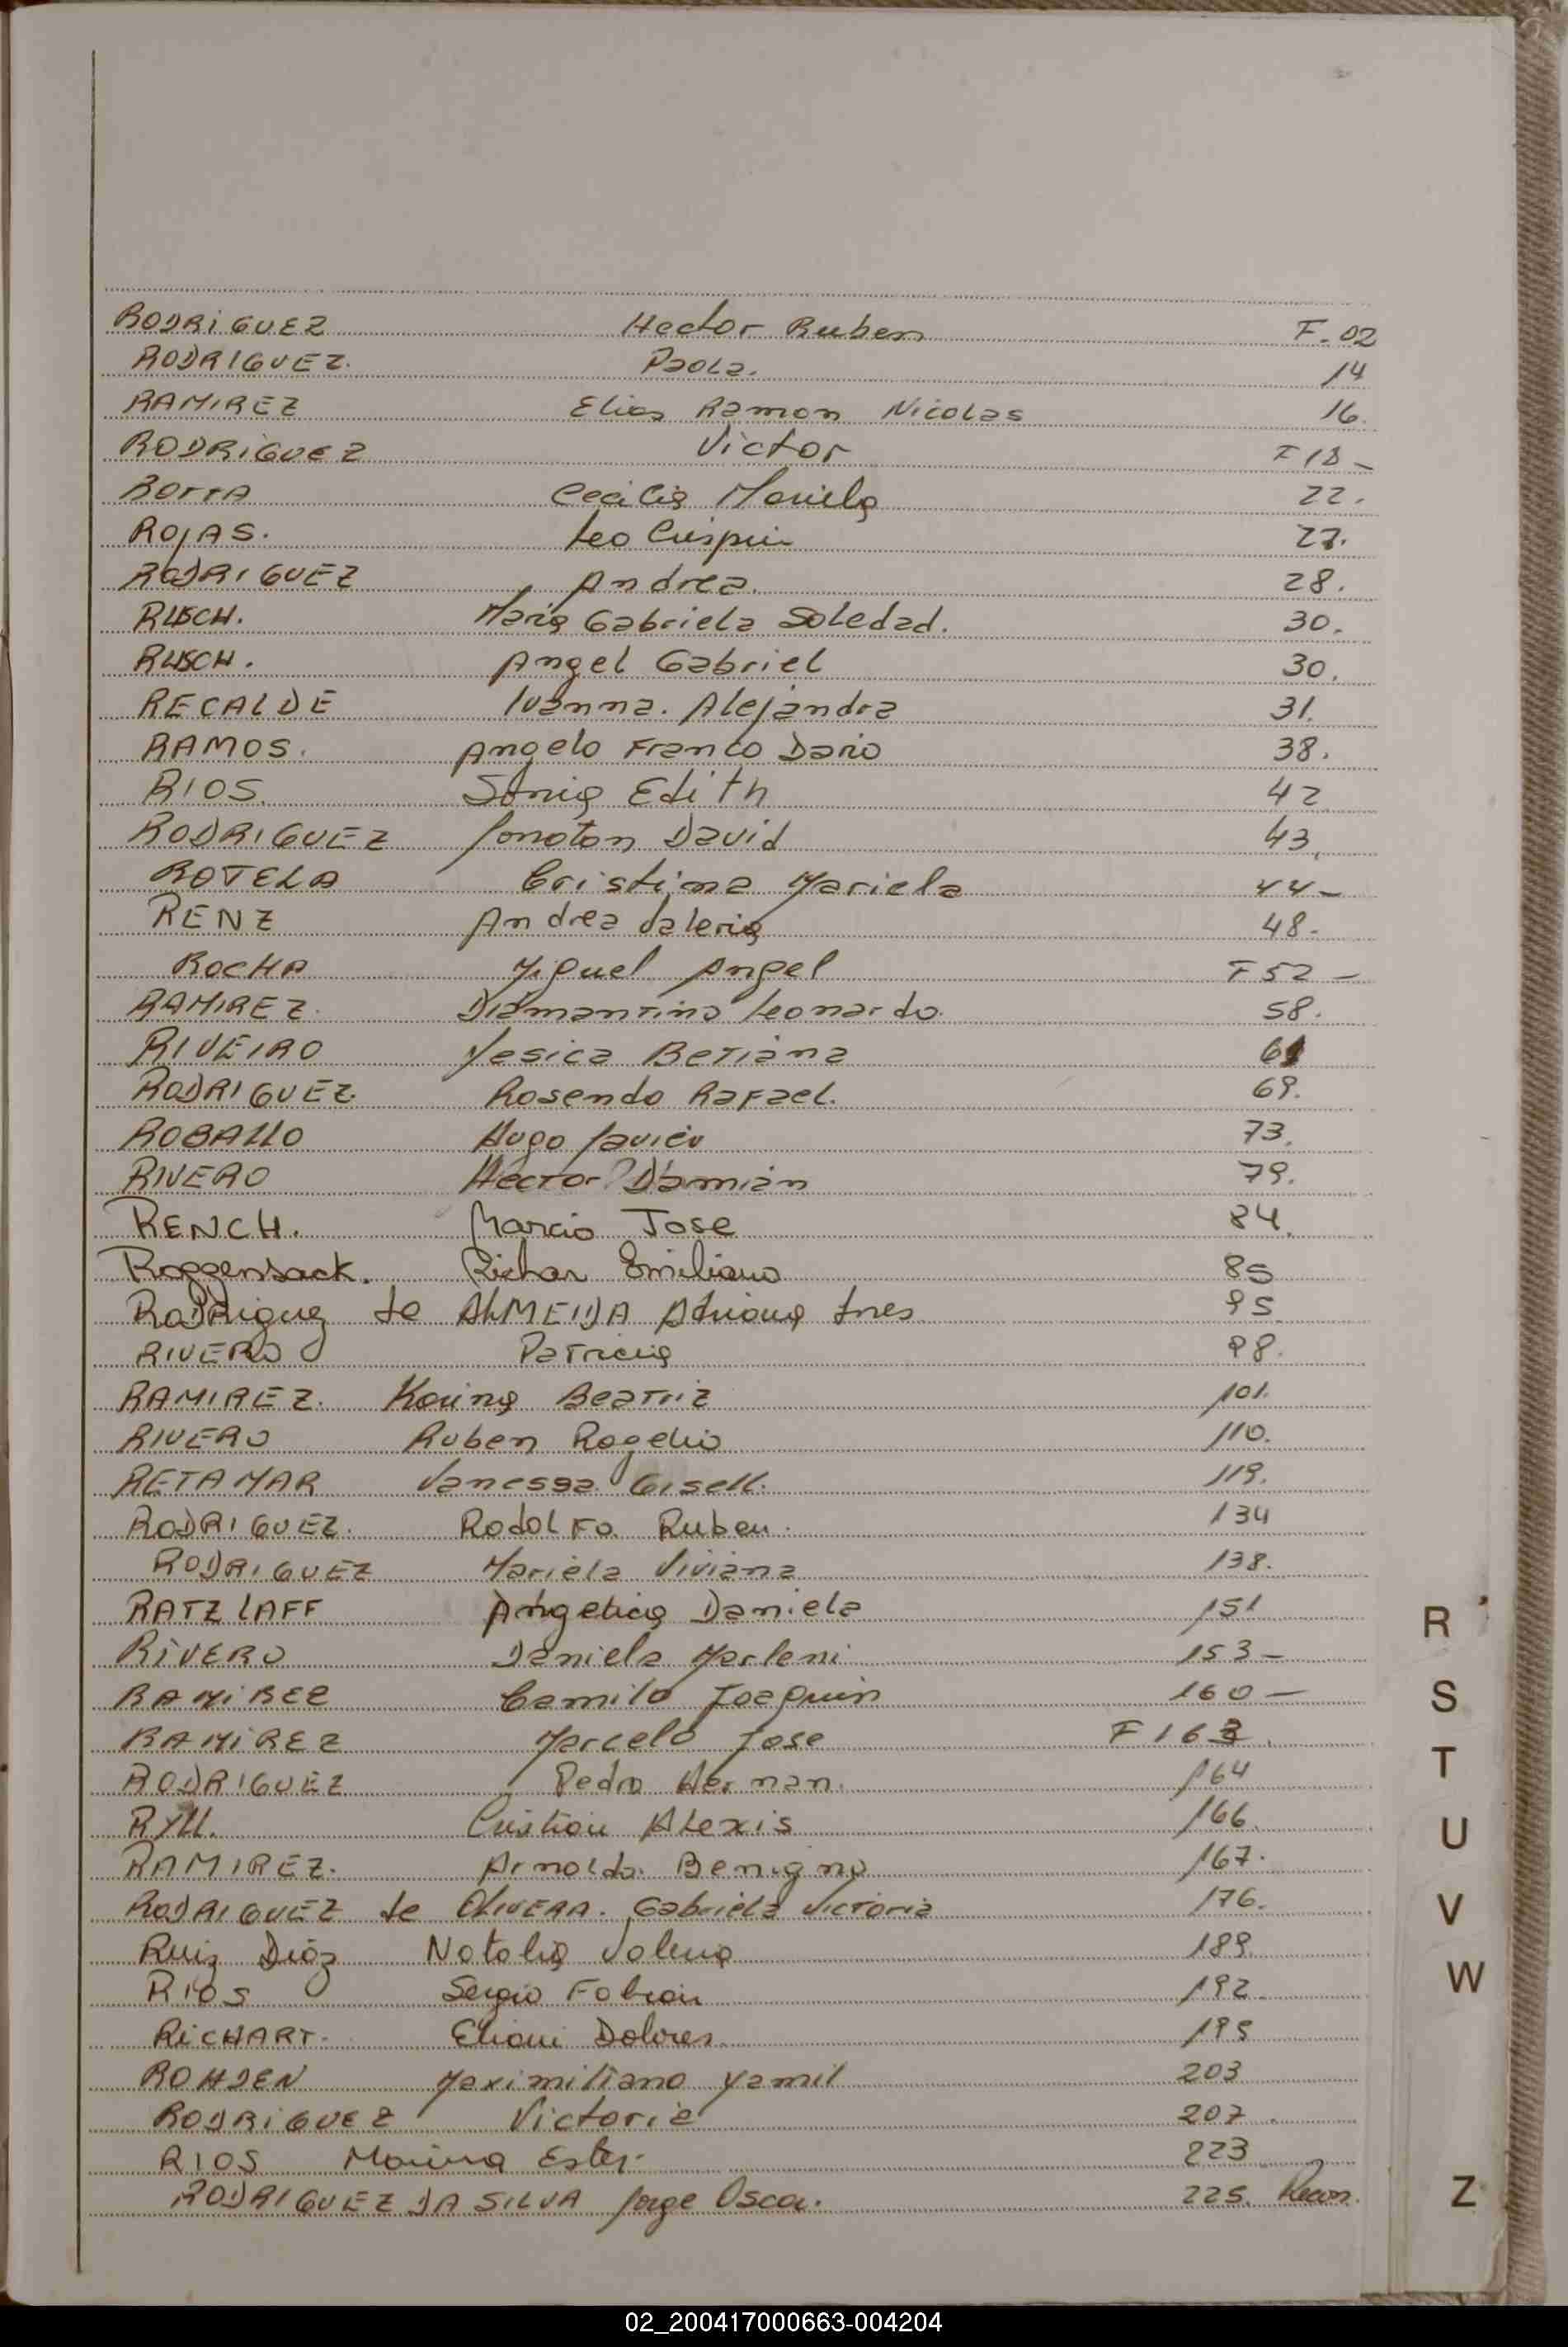 RODRIGUEZ Hector Ruben F. 02
RODRIGUEZ. Paola. 14
RAMIREZ Elias Ramon Nicolas 16.
RODRIGUEZ Victor F 18 -
ROTTA Cecilia Mariela 22.
ROJAS. Leo Crispin 27.
RODRIGUEZ Andrea. 28.
RUSCH. Maria Gabriela Soledad. 30.
RUSCH. Angel Gabriel 30.
RECALDE Ivanna. Alejandra 31.
RAMOS. Angelo Franco Dario 38.
RIOS. Sonia Edith 42
RODRIGUEZ Jonatan David 43.
ROTELA Cristina Mariela 44 -
RENZ Andrea Valeria 48.
ROCHA Miguel Angel F 52 -
RAMIREZ. Diamantino Leonardo. 58.
RIVEIRO Yesica Betiana 61
RODRIGUEZ. Rosendo Rafael. 69.
ROBALLO Hugo Javier 73.
RIVERO Hector Damian 79.
RENCH. Marcio Jose 84.
Roggensack. Richar Emiliano 85
RODRIGUEZ de ALMEIDA Adriana Ines 95.
RIVERO Patricia 98.
RAMIREZ. Karina Beatriz 101.
RIVERO Ruben Rogelio 110.
RETAMAR Vanessa Gisell. 119.
RODRIGUEZ. Rodolfo Ruben. 134
RODRIGUEZ Mariela Viviana 138.
RATZLAFF Angelica Daniela 151
RIVERO Daniela Marleni 153 -
RAMIREZ Camilo Joaquin 160 -
RAMIREZ Marcelo Jose F 163.
RODRIGUEZ Pedro Hernan. 164
RYLL. Cristian Alexis 166.
RAMIREZ. Arnoldo Benigno 167.
RODRIGUEZ de OLIVERA. Gabriela Victoria 176.
Ruiz Diaz Natalia Valeria 189.
RIOS Sergio Fabian 192.
RICHART. Eliani Dolores. 195
ROHDEN Maximiliano Yamil 203
RODRIGUEZ Victoria 207.
RIOS Marina Ester. 223
RODRIGUEZ DA SILVA Jorge Oscar. 225. Recon.
R
S
T
U
V
W
Z
02_200417000663-004204